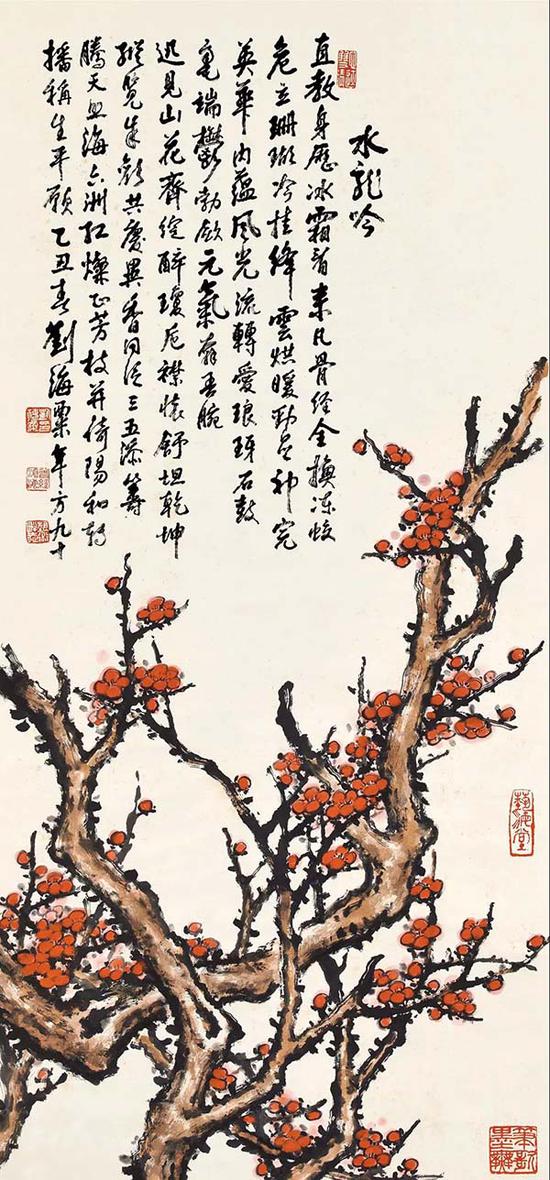 水龍吟
直教身歷冰霜看來凡骨經全換凍蛟
危立珊瑚冷挂絳雲烘暖勁足神完
英華內蘊風光流轉愛琅玡石鼓
毫端鬱勃歛元氣奔吾腕
迅見山花齊綻醉瓊卮襟懷舒坦乾坤
縱覽朱顏共慶異香同泛三五添籌
騰天照海六洲紅燦正芳枝并倚陽和轉
播稱生平願乙丑春劉海粟年方九十
藝海堂